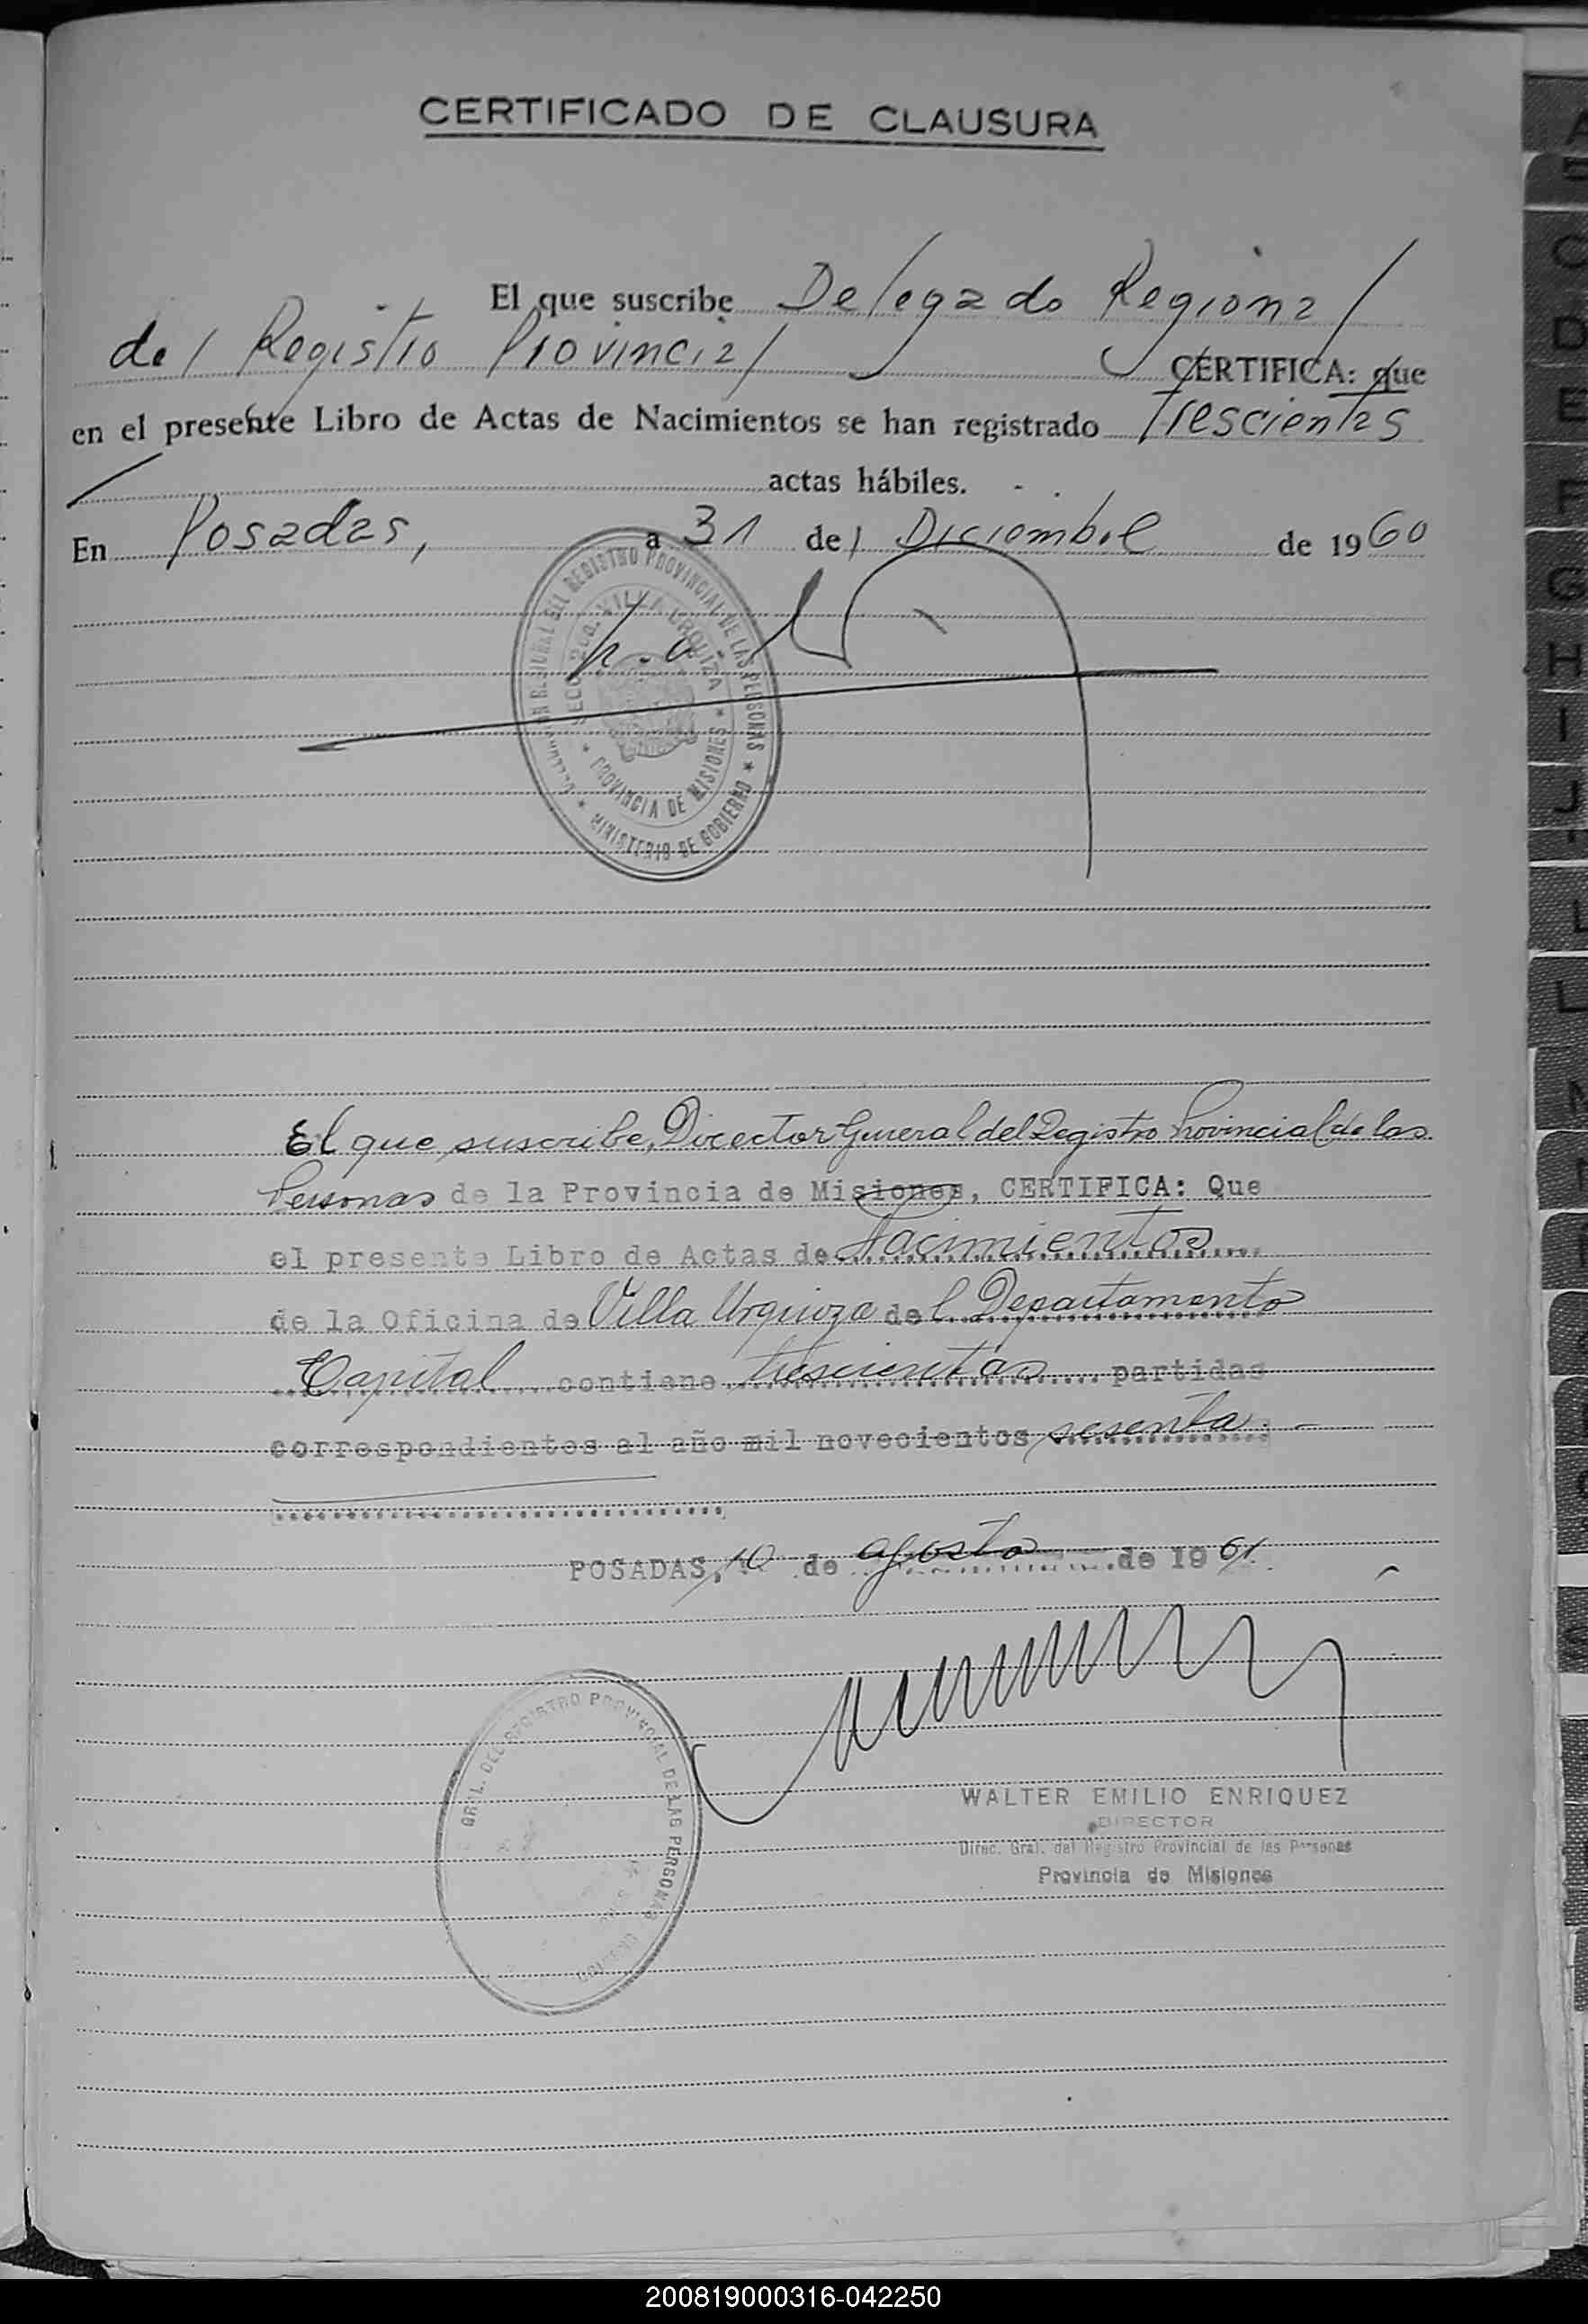 CERTIFICADO DE CLAUSURA
El que suscribe Delegado Regional
del Registro Provincial CERTIFICA: que
en el presente Libro de Actas de Nacimientos se han registrado Trescientas
actas hábiles.
En Posadas, a 31 del Diciembre de 1960
REGIONAL DEL REGISTRO PROVINCIAL DE LAS PERSONAS * MINISTERIO DE GOBIERNO *
SECC. 2da. VILLA URQUIZA * PROVINCIA DE MISIONES *
p.a.
El que suscribe, Director General del Registro Provincial de las
Personas de la Provincia de Misiones, CERTIFICA: Que
el presente Libro de Actas de Nacimientos
de la Oficina de Villa Urquiza del Departamento
Capital contiene trescientas partidas
correspondientes al año mil novecientos sesenta.-
POSADAS, 10 de agosto de 1961.
GRAL. DEL REGISTRO PROVINCIAL DE LAS PERSONAS
WALTER EMILIO ENRIQUEZ
DIRECTOR
Direc. Gral. del Registro Provincial de las Personas
Provincia de Misiones
C
D
E
F
G
H
I
J
L
200819000316-042250